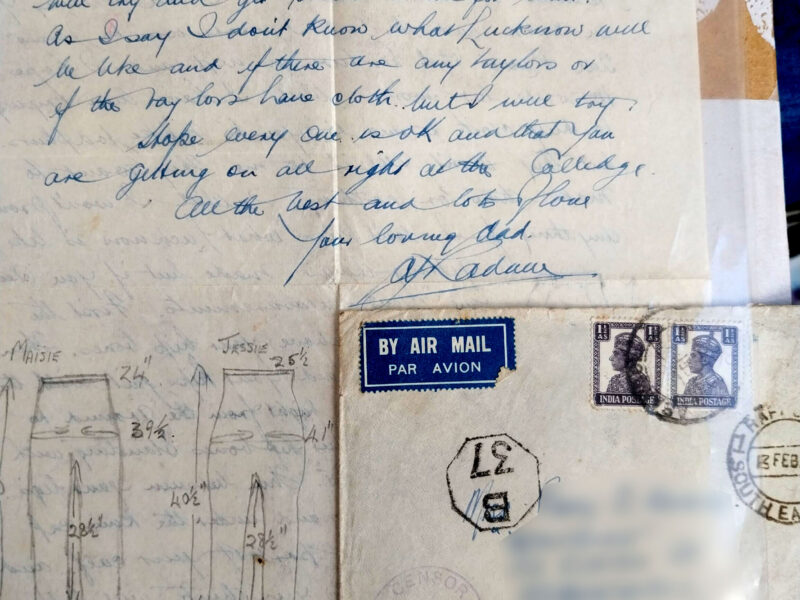 will try and get
As I say I don't know what Lucknow will
be like and if there are any taylors or
if the taylors have cloth. but I will try.
Hope every one is OK and that you
are getting on all right at the Colledge.
All the best and lots of love
Your loving dad.
MAISIE
24"
39½
28½"
JESSIE
25½
41"
40½"
28½"
BY AIR MAIL
PAR AVION
1½ AS
1½ AS
INDIA POSTAGE
1½ AS
1½ AS
INDIA POSTAGE
B
37
FEB
SOUTH EA
CENSOR